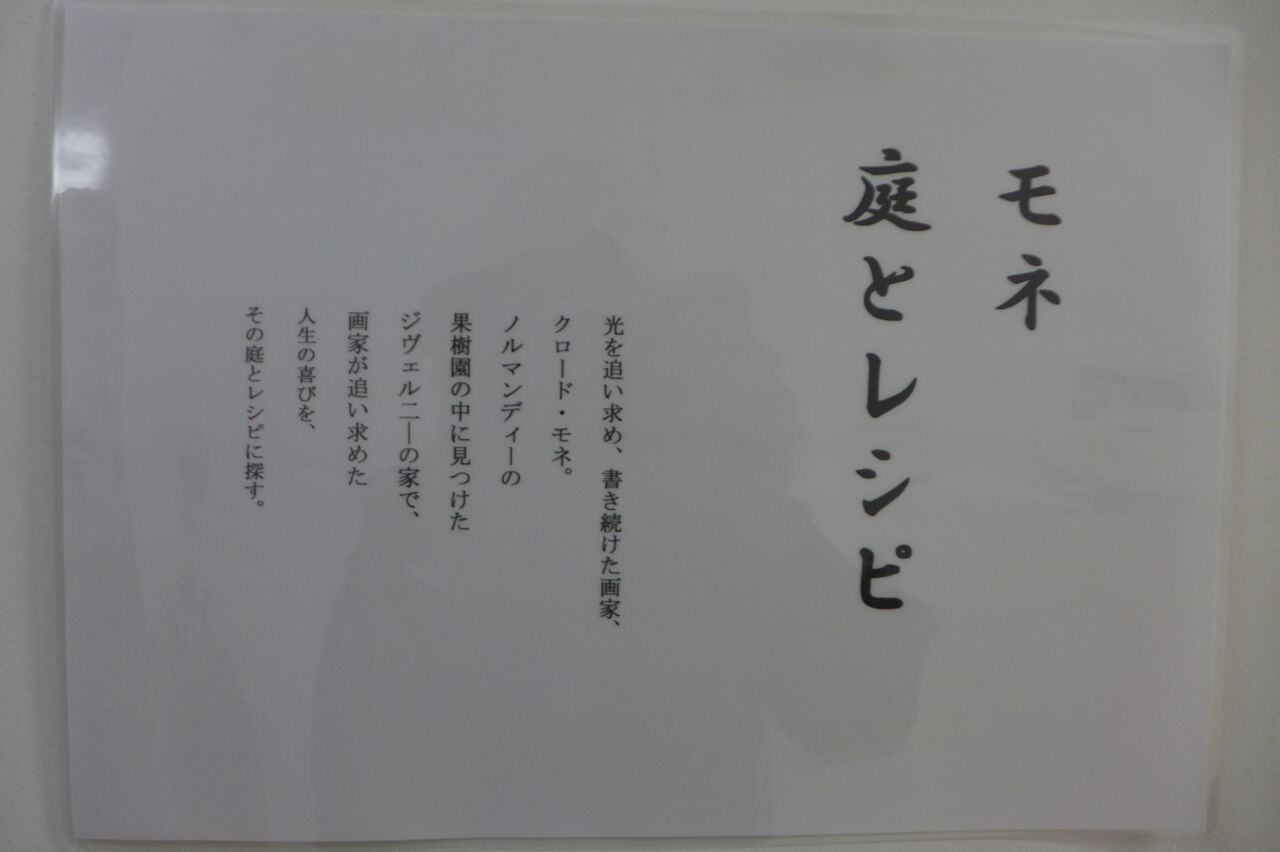 モネ
庭とレシピ
光を追い求め、書き続けた画家、
クロード・モネ。
ノルマンディーの
果樹園の中に見つけた
ジヴェルニーの家で、
画家が追い求めた
人生の喜びを、
その庭とレシピに探す。